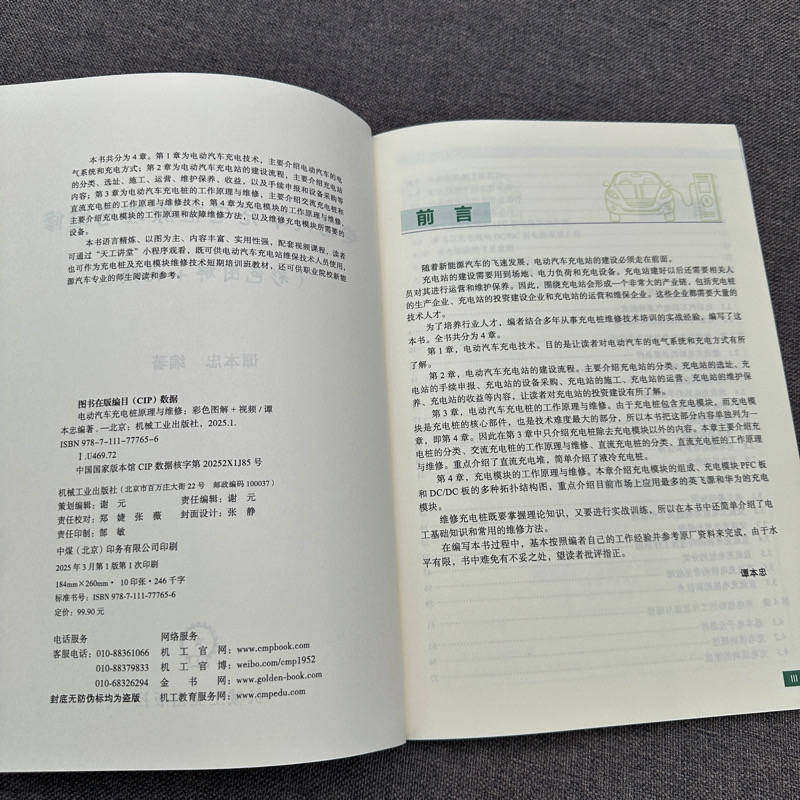 本书共分为4章。第1章为电动汽车充电技术，主要介绍电动汽车的电
气系统和充电方式；第2章为电动汽车充电站的建设流程，主要介绍充电站
的分类、选址、施工、运营、维护保养、收益，以及手续申报和设备采购等
内容；第3章为电动汽车充电桩的工作原理与维修，主要介绍交流充电桩和
直流充电桩的工作原理与维修技术；第4章为充电模块的工作原理与维修，
主要介绍充电模块的工作原理和故障维修方法，以及维修充电模块所需要的
设备。
本书语言精炼、以图为主、内容丰富、实用性强，配套视频课程，读者
可通过“天工讲堂”小程序观看，既可供电动汽车充电站维保技术人员使用，
也可作为充电桩及充电模块维修技术短期培训班教材，还可供职业院校新能
源汽车专业的师生阅读和参考。
图书在版编目（CIP）数据
电动汽车充电桩原理与维修：彩色图解+视频 / 谭
本忠编著. —北京：机械工业出版社，2025.1.
ISBN 978-7-111-77765-6
Ⅰ.U469.72
中国国家版本馆CIP数据核字第20252X1J85号
机械工业出版社（北京市百万庄大街22号 邮政编码100037）
策划编辑：谢 元 责任编辑：谢 元
责任校对：郑 婕 张 薇 封面设计：张 静
责任印制：郜 敏
中煤（北京）印务有限公司印刷
2025年3月第1版第1次印刷
184mm×260mm·10印张·246千字
标准书号：ISBN 978-7-111-77765-6
定价：99.90元
电话服务 网络服务
客服电话：010-88361066 机 工 官 网：www.cmpbook.com
010-88379833 机 工 官 博：weibo.com/cmp1952
010-68326294 金 书 网：www.golden-book.com
封底无防伪标均为盗版 机工教育服务网：www.cmpedu.com
前 言
随着新能源汽车的飞速发展，电动汽车充电站的建设必须走在前面。
充电站的建设需要用到场地、电力负荷和充电设备。充电站建好以后还需要相关人
员对其进行运营和维护保养。因此，围绕充电站会形成一个非常大的产业链，包括充电桩
的生产企业、充电站的投资建设企业和充电站的运营和维保企业。这些企业都需要大量的
技术人才。
为了培养行业人才，编者结合多年从事充电桩维修技术培训的实战经验，编写了这
本书。全书共分为4章。
第1章，电动汽车充电技术。目的是让读者对电动汽车的电气系统和充电方式有所
了解。
第2章，电动汽车充电站的建设流程。主要介绍充电站的分类、充电站的选址、充
电站的手续申报、充电站的设备采购、充电站的施工、充电站的运营、充电站的维护保
养、充电站的收益等内容，让读者对充电站的投资建设有所了解。
第3章，电动汽车充电桩的工作原理与维修。由于充电桩包含充电模块，而充电模
块是充电桩的核心部件，也是技术难度最大的部分，所以本书把这部分内容单独列为一
章，即第4章。因此在第3章中只介绍充电桩除去充电模块以外的内容。本章主要介绍充
电桩的分类、交流充电桩的工作原理与维修、直流充电桩的分类、直流充电桩的工作原理
与维修。重点介绍了直流充电堆，简单介绍了液冷充电桩。
第4章，充电模块的工作原理与维修。本章介绍充电模块的组成、充电模块PFC板
和DC/DC板的多种拓扑结构图，重点介绍目前市场上应用最多的英飞源和华为的充电
模块。
维修充电桩既要掌握理论知识，又要进行实战训练，所以在本书中还简单介绍了电
工基础知识和常用的维修方法。
在编写本书过程中，基本按照编者自己的工作经验并参考原厂资料来完成，由于水
平有限，书中难免有不妥之处，望读者批评指正。
谭本忠
III